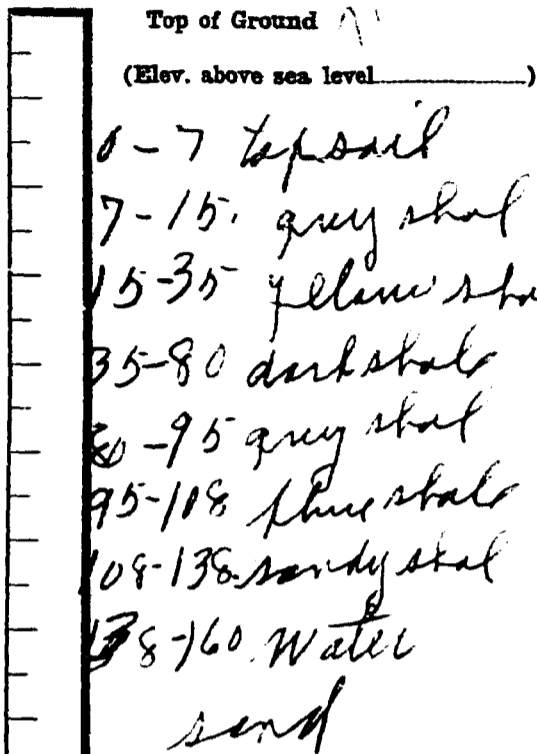 Top of Ground
(Elev. above sea level)
0-7 topsoil
7-15. grey shal
15-35 yellow sha
35-80 dark shale
80-95 grey shal
95-108 blue shale
108-138 sandy shal
138-160. Water
sand